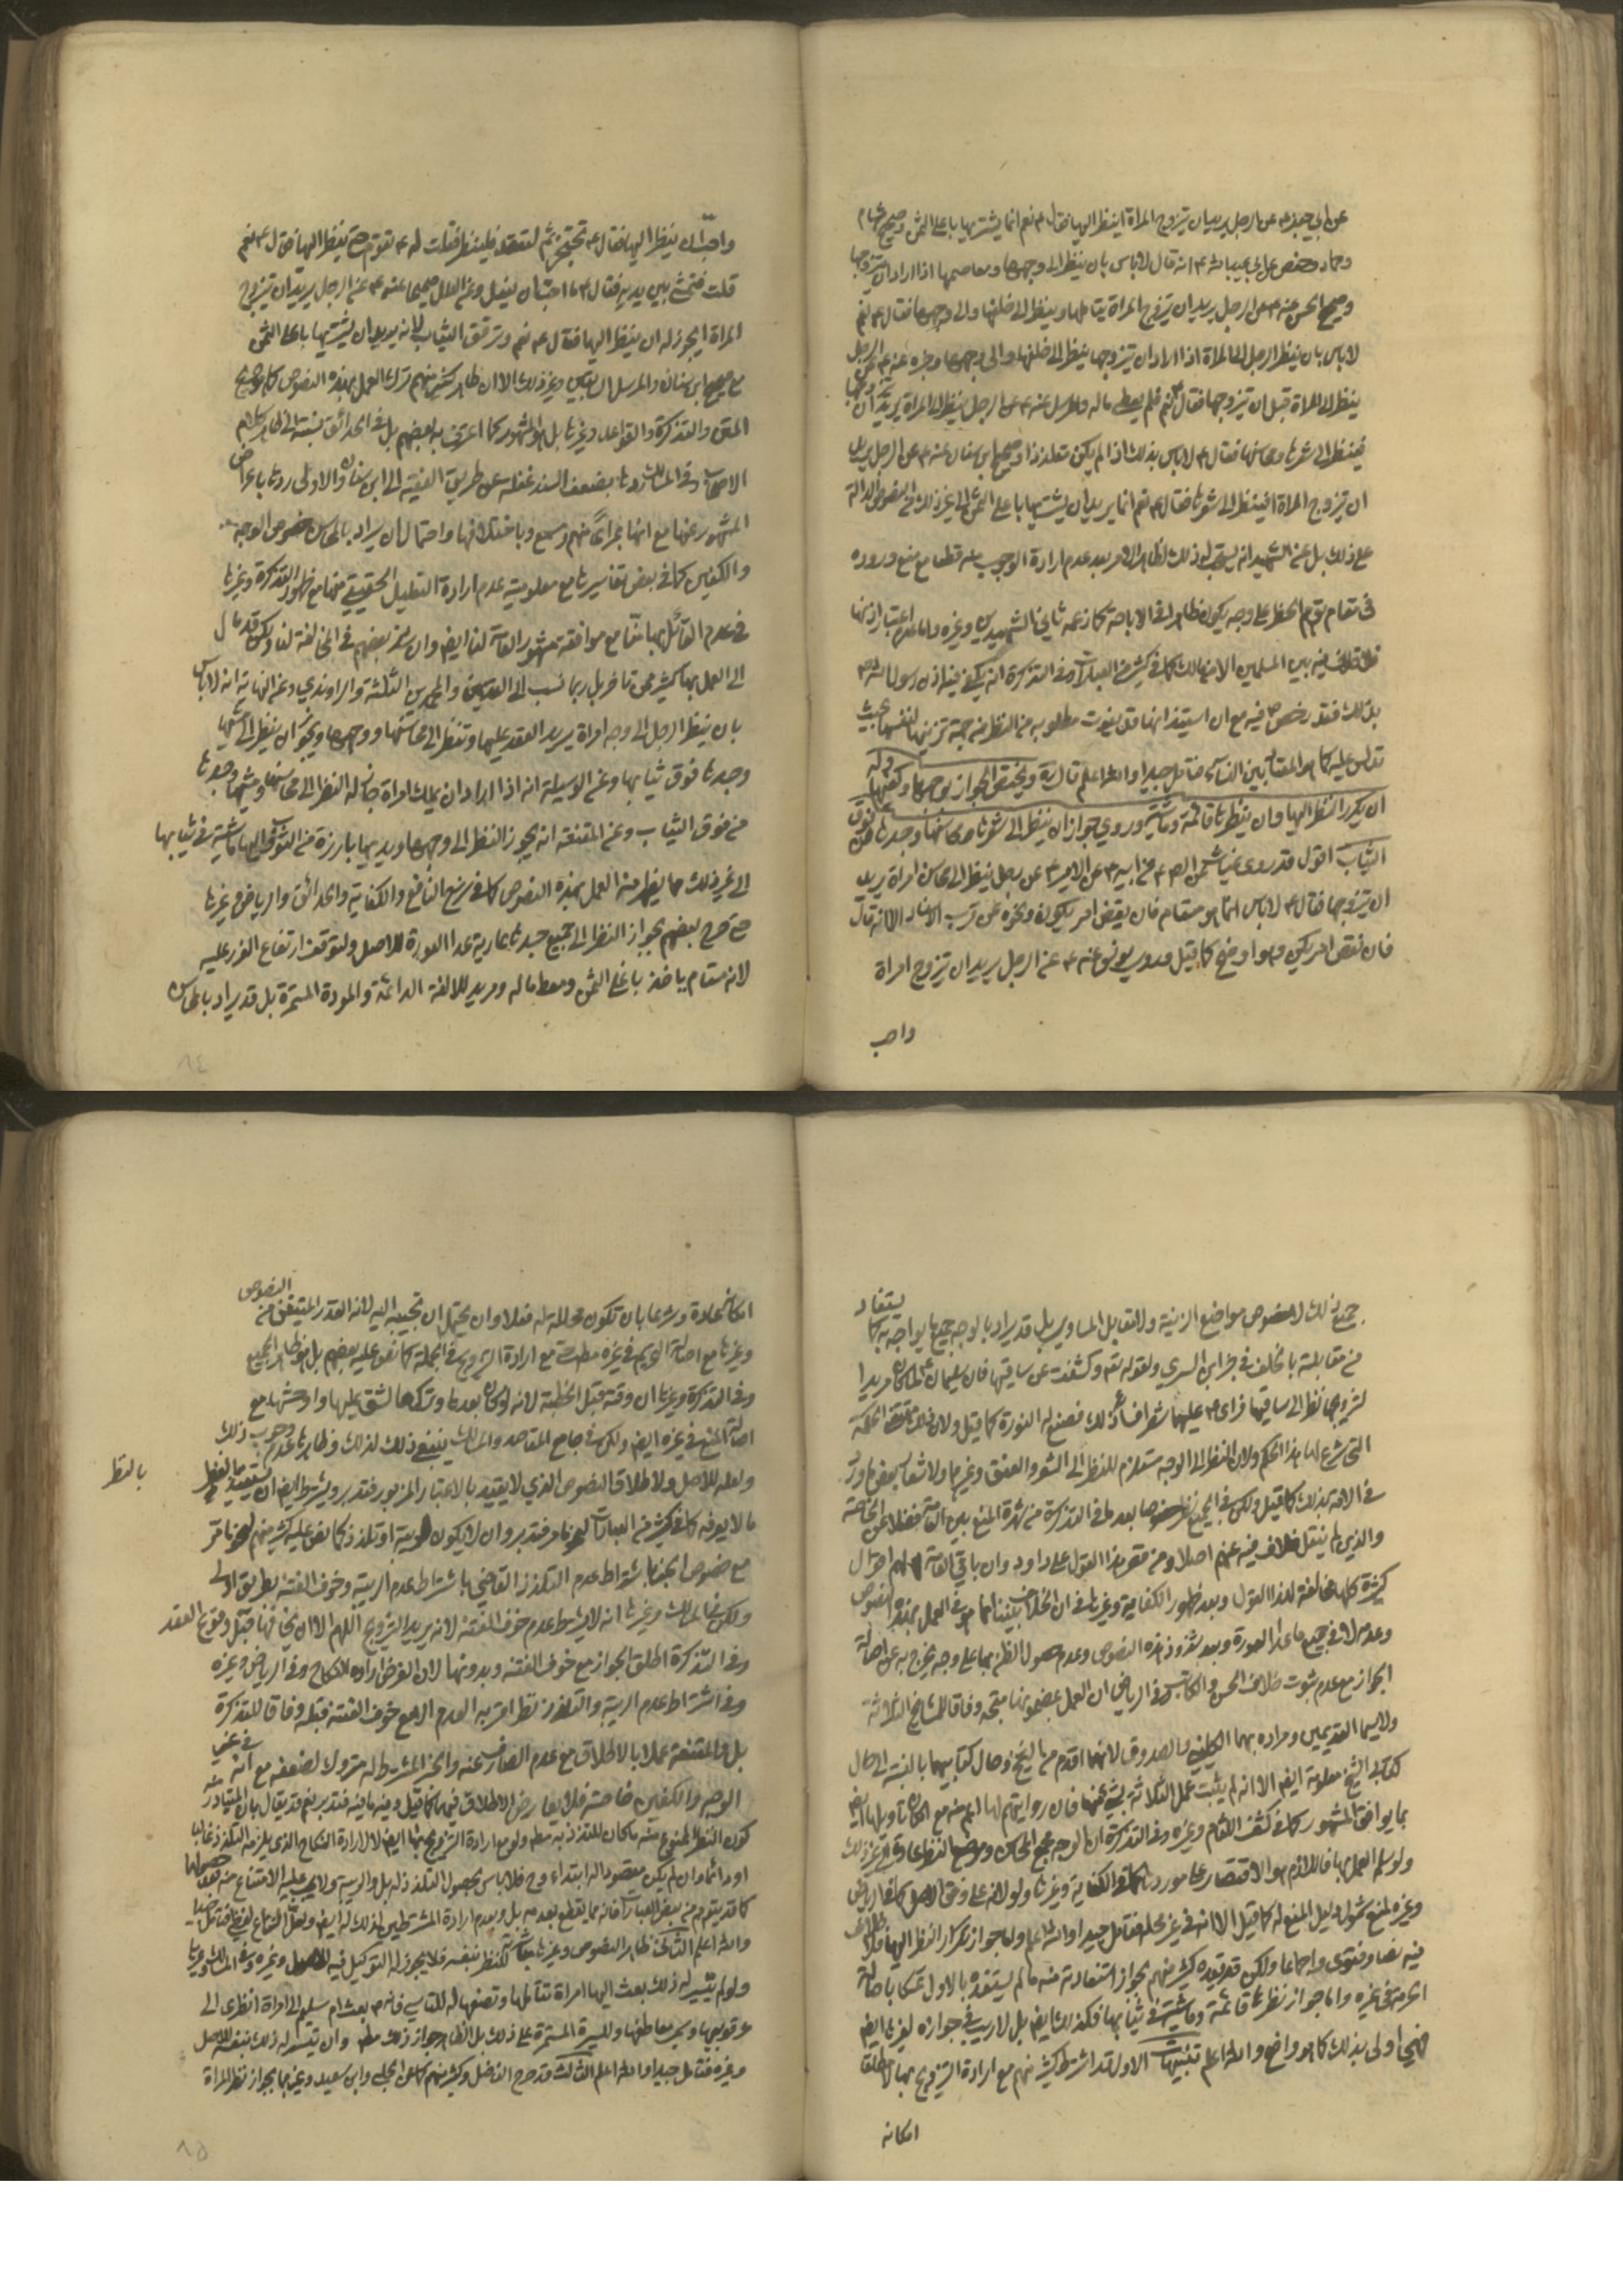 عن ابي جعفر ع عن الرجل يريد ان يتزوج المراة اينظر اليها فقال ع نعم انما يشتريها باعلى الثمن وصحيح هشام
وحماد وحفص عن ابي عبد الله ع انه قال لا باس بان ينظر الى وجهها ومعاصمها اذا اراد ان يتزوجها
وصحيح الحسن عنه ع عن الرجل يريد ان يتزوج المراة يتاملها وينظر الى خلفها والى وجهها فقال ع نعم
لا باس بان ينظر الرجل الى المراة اذا اراد ان يتزوجها ينظر الى خلفها والى وجهها وخبره عنه ع عن الرجل
ينظر الى المراة قبل ان يتزوجها فقال ع نعم فلم يعطي ماله والمرسل عنه ع عن الرجل ينظر الى المراة يريد ان يتزوجها
فينظر الى شعرها ومحاسنها فقال ع لا باس بذلك اذا لم يكن متلذذا وصحيح ابن سنان عنه ع عن الرجل يريد
ان يتزوج المراة افينظر الى شعرها فقال ع نعم انما يريد ان يشتريها باعلى الثمن الى غير ذلك من النصوص الدالة
على ذلك بل عن الشهيد انه يستحب له ذلك لظاهر الامر بعد عدم ارادة الوجوب منه قطعا مع منع وروده
في مقام توهم الحظر على وجه يكون ظاهرا في الاباحة كما زعمه ثاني الشهيدين وغيره واما عدم اعتبار اذنها
فلا خلاف فيه بين المسلمين الا من مالك كما في كثير من العبارات وفي التذكرة انه يكفي فيه اذن رسول الله ص
بذلك فقد رخص فيه مع ان استيذانها قد يفوت مطلوبه من النظر من جهة تزيينها نفسها بحيث
تدلس عليه كما هو المعتاد بين النساء فتامل جيدا والله اعلم قال ره ويختص الجواز بوجهها وكفيها وله
ان يكرر النظر اليها وان ينظرها قائمة وماشية وروي جواز ان ينظر الى شعرها ومحاسنها وجسدها من فوق
الثياب اقول قد روى غياث عن الص ع عن ابيه ع عن الامير ع عن رجل ينظر الى محاسن امراة يريد
ان يتزوجها فقال ع لا باس انما هو مستام فان يقض امر يكون ونحوه عن قرب الاسناد الا انه قال
فان تقض امر يكن وهو اوضح كما قيل وروى يونس عنه ع عن الرجل يريد ان يتزوج امراة
واحب
واحب ان ينظر اليها فقال ع تحتجز ثم لتقعد فلينظر فقلت له ع تقوم حتى ينظر اليها فقال ع نعم
قلت فتمشي بين يديه فقال ع ما احب ان تفعل وعن العلل صحيحا عنه ع عن الرجل يريد ان يتزوج
المراة ايجوز له ان ينظر اليها فقال ع نعم وترقق الثياب لانه يريد ان يشتريها باعلى الثمن
مع صحيح ابن سنان والمرسل السابقين وغير ذلك الا ان ظاهر كثير منهم ترك العمل بهذه النصوص كما هو صريح
المتن والتذكرة والقواعد وغيرها بل هو المشهور كما اعترف به بعضهم بل في الحدائق نسبته الى ظاهر كلام
الاصحاب وفي المسالك ردها بضعف السند غفلة عن طريق الفقيه الى ابن سنان والاولى ردها باعراض
المشهور عنها مع انها بمراى منهم ومسمع وباختلافها واحتمال ان يراد بالمحاسن خصوص الوجه
والكفين كما في بعض تفاسيرها مع معلومية عدم ارادة التعليل الحقيقي منها مع ظهور التذكرة وغيرها
في عدم القائل بها منا مع موافقة مشهور العامة لنا ايضا وان شذ بعضهم في المخالفة لنا ولكن قد مال
الى العمل بها كثير ممن تاخر بل ربما نسب الى القديمين والمحمدين الثلثة والراوندي وعن النهاية انه لا باس
بان ينظر الرجل الى وجه امراة يريد العقد عليها وتنظر الى محاسنها ووجهها ويجوز ان ينظر الى مشيها
وجسدها فوق ثيابها وعن الوسيلة انه اذا اراد ان يملك امراة جاز له النظر الى محاسنها ومشيها وجسدها
من فوق الثياب وعن المقنعة انه يجوز النظر الى وجهها ويديها بارزة من الثوب واليها ماشية في ثيابها
الى غير ذلك مما يظهر منه العمل بهذه النصوص كما في شرح النافع والكفاية والحدائق والرياض وغيرها
حتى صرح بعضهم بجواز النظر الى جميع جسدها عارية عدا العورة للاصل ولتوقف ارتفاع الغرر عليه
لانه مستام ياخذ باغلى الثمن ومعط ماله ومريد للالفة الدائمة والمودة المستمرة بل قد يراد بالمحاسن
٨٤
جميع ذلك لا خصوص مواضع الزينة والمقابل المساوي بل قد يراد بالوجه جميع ما يواجه به كما يستفاد
من مقابلته بالخلف في خبر ابن السري ولقوله تعه وكشفت عن ساقيها فان سليمان ع لما كان مريدا
لتزوجها نظر الى ساقيها فراى ع عليهما شعرا فساءه ذلك فصنع له النورة كما قيل ولان ذلك مقتضى الحكمة
التي شرع لها هذا الحكم ولان النظر الى الوجه مستلزم للنظر الى الشعر والعنق وغيرهما ولاشعار بعض ما ورد
في الامة بذلك كما قيل ولكن في الجميع نظر خصوصا بعد ما في التذكرة من شهرة المنع بين العامة فضلا عن الخاصة
والذين لم ينقل خلاف فيه عنهم اصلا ومن قصر هذا القول على داود وان باقي العامة لهم اقوال
كثيرة كلها مخالفة لهذا القول وبعد ظهور الكفاية وغيرها في ان الخلاف بيننا انما هو في العمل بهذه النصوص
وعدمه لا في جميع ما عدا العورة وبعد شذوذ هذه النصوص وعدم حصول الظن بها على وجه يخرج به عن اصالة
الجواز مع عدم ثبوت خلاف الحسن وفي الرياض ان العمل بمضمونها متجه وفاقا للمشايخ الثلاثة
ولا سيما القديمين ومراده بهما الكليني والصدوق لانهما اقدم من الشيخ وحال كتابيهما بالنسبة الى حال
كتابي الشيخ معلومة ايضا الا انه لم يثبت عمل الثلاثة بشيء منها فان روايتهم لها اعم منه مع امكان تاويلها ايضا
بما يوافق المشهور كما في كشف اللثام وغيره وفي التذكرة ان الوجه مجمع المحاسن وموضع النظر عادة
ولو سلم العمل بها فاللازم هو الاقتصار على موردها كما في الكفاية وغيرها ولو لانه على وفق الاصل كما في الرياض
وغيره لمنع شمول دليل المنع له كما قيل الا انه في غير محله فتامل جيدا والله اعلم واما جواز تكرار النظر اليها فلا خلاف
فيه نصا وفتوى واجماعا ولكن قد قيده كثير منهم بجواز استفادته منه ما لم يستفده بالاول تمسكا باصالة
الحرمة في غيره واما جواز نظرها قائمة وماشية في ثيابها فكذلك ايضا بل لا ريب في جوازه لغيرها ايضا
فهي اولى بذلك كما هو واضح والله اعلم تنبيهات الاول قد اشترط كثير منهم مع ارادة التزويج بها مطلقا
امكانه
امكانه عادة وشرعا بان تكون محللة له فعلا وان يحتمل ان تجيبه اليه لانه القدر المتيقن من النصوص
وغيرها مع اصالة التحريم في غيره مطلقا مع ارادة التزويج في الجملة كما نص عليه بعضهم بل هو ظاهر الجميع
وفي التذكرة وغيرها ان وقته قبل الخطبة لانه لو كان بعدها وتركها لشق عليها واوحشها مع
اصالة المنع في غيره ايضا ولكن في جامع المقاصد والمسالك ينبغي ذلك لذلك وظاهرهما عدم وجوب ذلك
ولعله للاصل ولاطلاق النصوص الذي لا يقيد بالاعتبار المزبور فتدبر ويشترط ايضا ان يستفيد بالنظر
بالنظر
ما لا يعرفه كما في كثير من العبارات لنحو ما مر فتدبر وان لا يكون لريبة او تلذذ كما نص عليه كثير منهم لنحو ما مر
مع خصوص الخبر باشتراط عدم التلذذ القاضي باشتراط عدم الريبة وخوف الفتنة بطريق اولى
ولكن في المسالك وغيرها انه لا يشترط عدم خوف الفتنة لانه يريد التزويج اللهم الا ان يخافها قبل وقوع العقد
وفي التذكرة اطلق الجواز مع خوف الفتنة وبدونها لان الغرض ارادة النكاح وفي الرياض وغيره
وفي اشتراط عدم الريبة والتلذذ نظر اقربه العدم الا مع خوف الفتنة قبله وفاقا للتذكرة
بل والمقنعة عملا بالاطلاق مع عدم الصارف عنه والخبر المشترط له متروك لضعفه مع انه في غير
الوجه والكفين خاصة فلا يعارض الاطلاق فيهما كما قيل وفيه ما فيه فتدبر نعم قد يقال بان المتبادر منه
كون النظر الممنوع منه ما كان للتلذذ به مطلقا ولو مع ارادة التزويج بها ايضا لا لارادة النكاح الذي يلزمه التلذذ غالبا
او دائما وان لم يكن مقصودا له ابتداء وح فلا باس بحصول التلذذ له بل والريبة ولا يجب عليه الامتناع منه بعد حصولها
كما قد يتوهم من بعض العبارات فانه مما يقطع بعدمه بل وبعدم ارادة المشترطين لذلك له ايضا ولعل النزاع لفظي فتامل جيدا
والله اعلم الثاني ظاهر النصوص وغيرها مباشرته للنظر بنفسه فلا يجوز له التوكيل فيه للاصل وغيره وفي المسالك وغيرها
ولو لم يتيسر له ذلك بعث اليها امراة تتاملها وتصفها له للتاسي فانه ص بعث ام سليم الى امراة انظري الى
عرقوبيها وشمي معاطفها وللسيرة المستمرة على ذلك بل الظاهر جواز ذلك مطلقا وان تيسر له ذلك بنفسه للاصل
وغيره فتامل جيدا والله اعلم الثالث قد صرح الفاضل وكثير منهم كابن الحلي وابن سعيد وغيرهما بجواز نظر المراة
٨٥